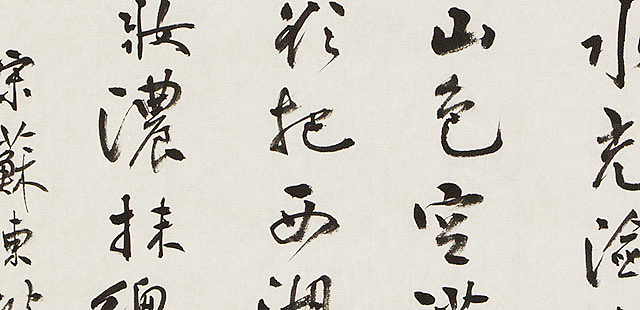 水光瀲
山色空濛
欲把西湖
妝濃抹總
宋蘇東坡